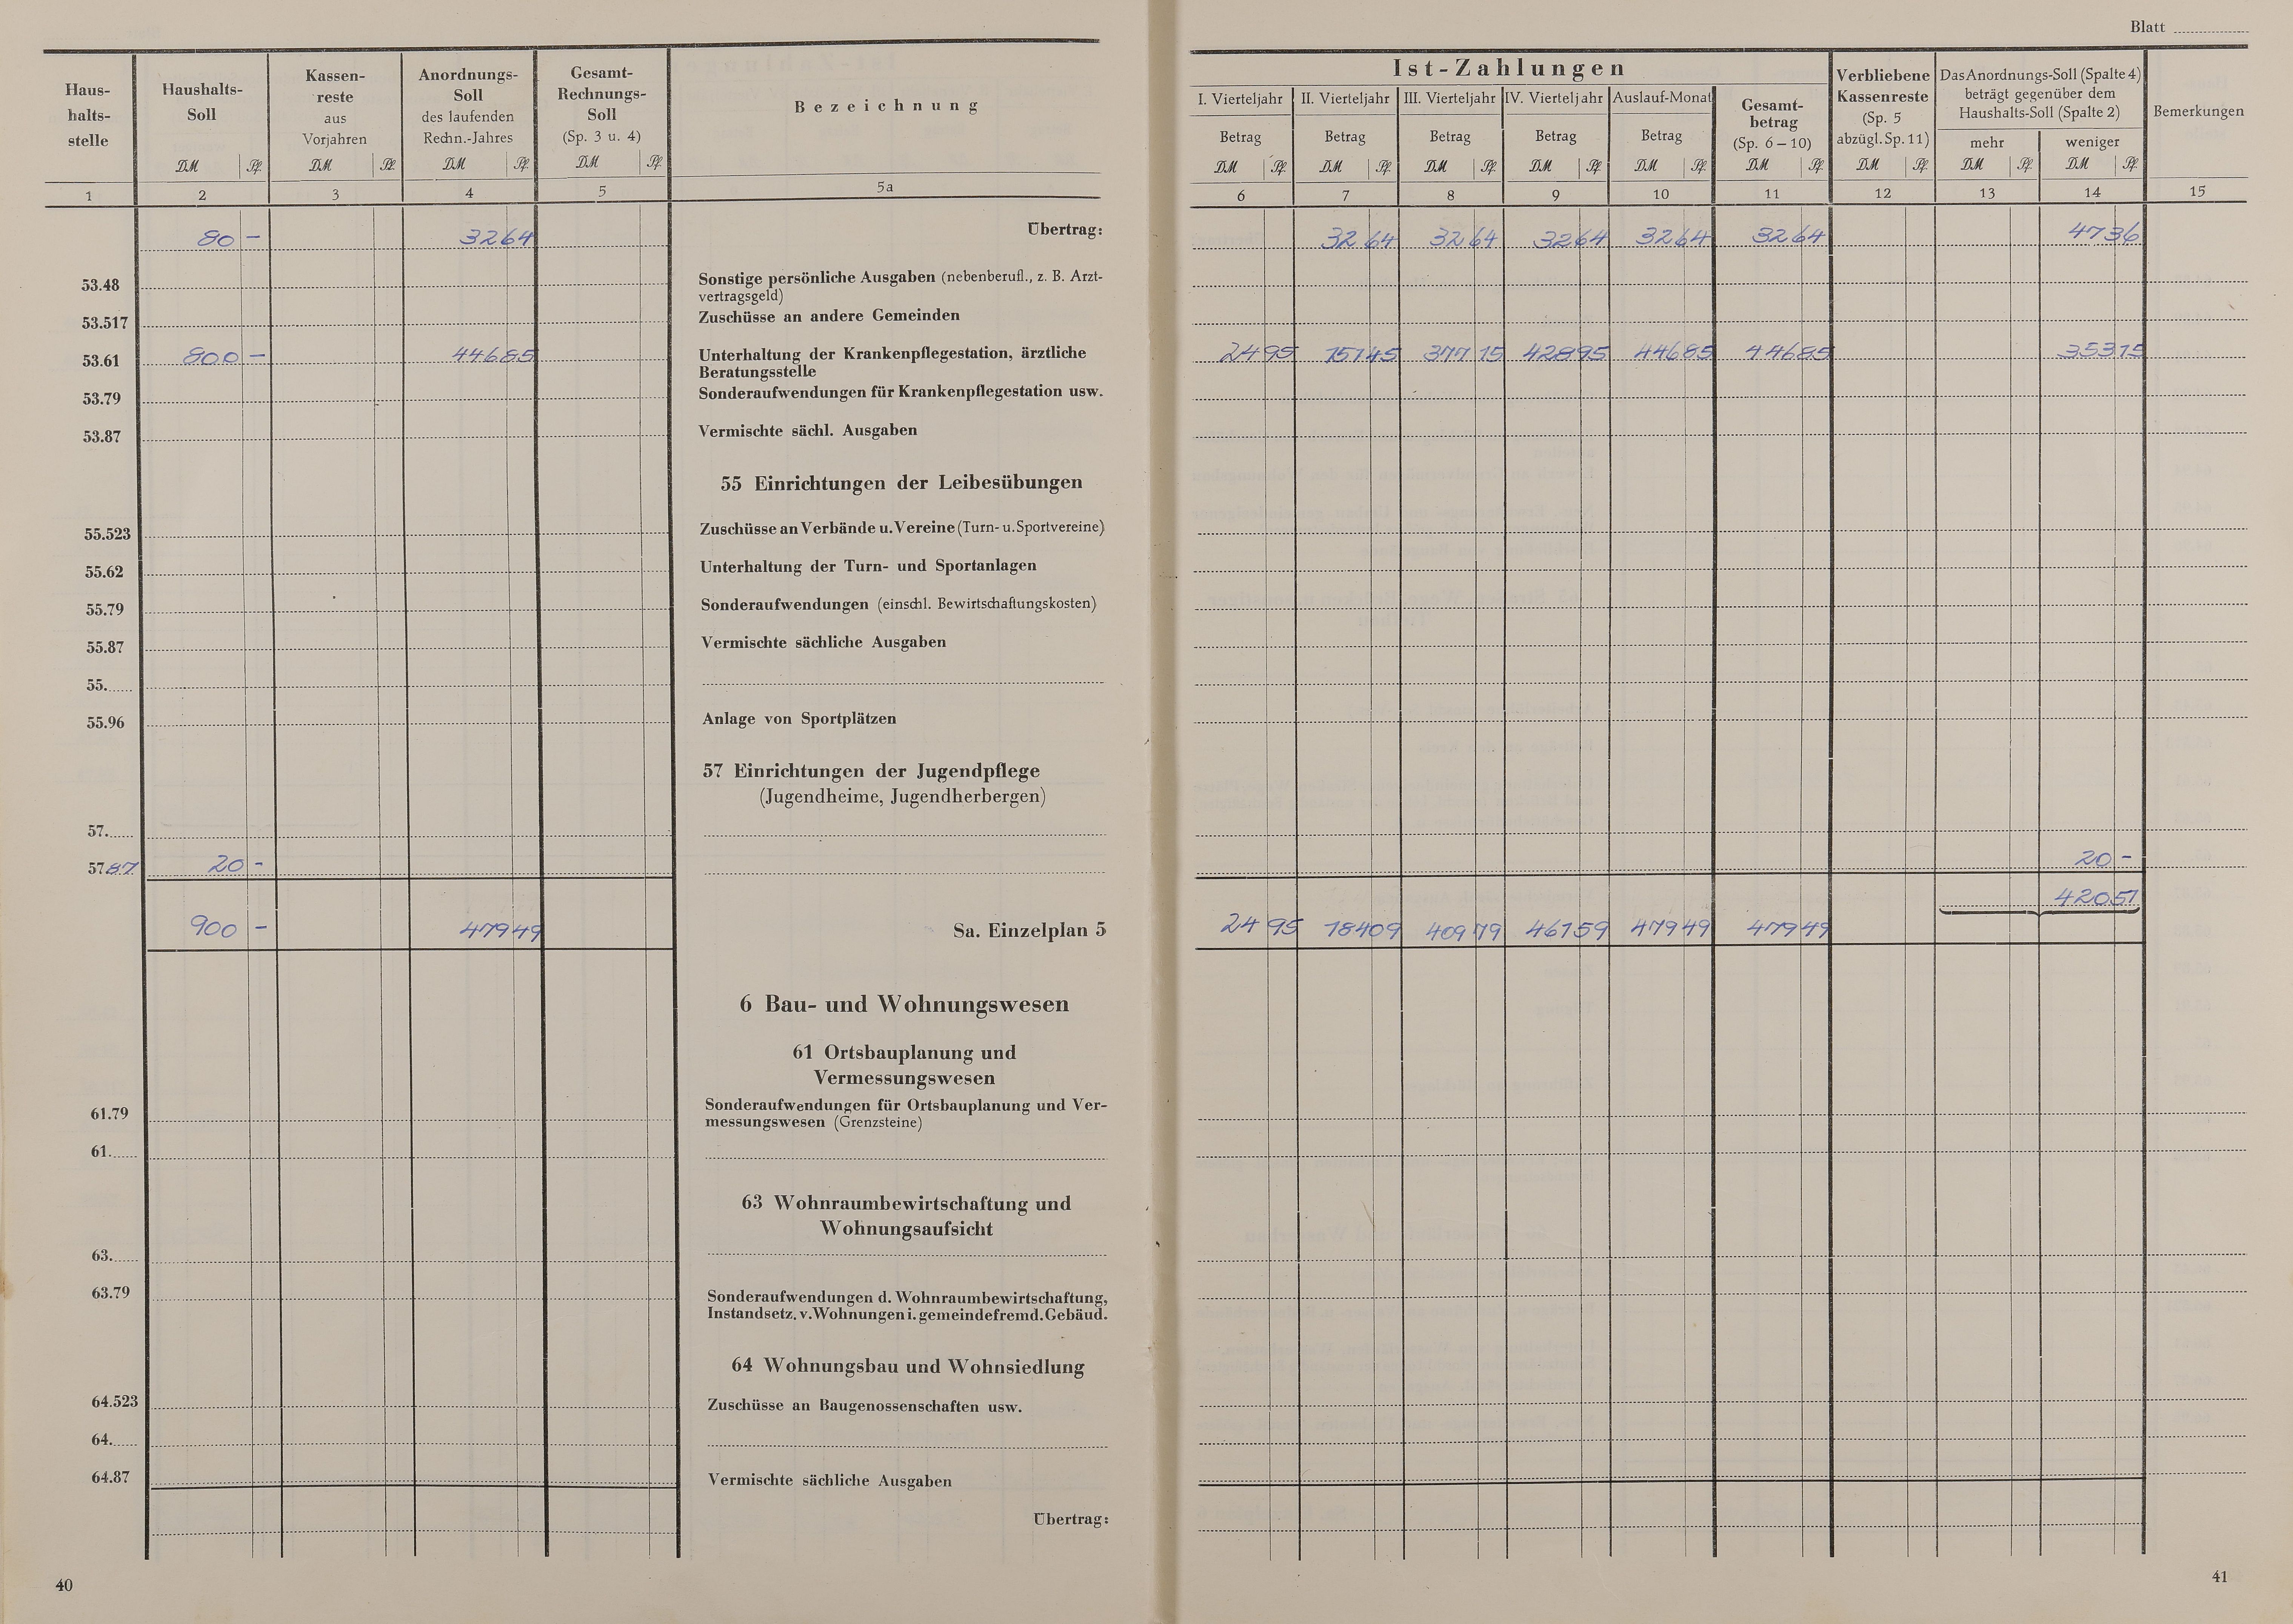 Blatt
Haus-
halts-
stelle
Haushalts-
Soll
Kassen-
reste
aus
Vorjahren
Anordnungs-
Soll
des laufenden
Rechn.-Jahres
Gesamt-
Rechnungs-
Soll
(Sp. 3 u. 4)
Bezeichnung
DM Pf. DM Pf. DM Pf. DM Pf.
1 2 3 4 5 5a
Ist-Zahlungen
I. Vierteljahr II. Vierteljahr III. Vierteljahr IV. Vierteljahr Auslauf-Monat
Betrag Betrag Betrag Betrag Betrag
Gesamt-
betrag
(Sp. 6 – 10)
Verbliebene
Kassenreste
(Sp. 5
abzügl. Sp. 11)
Das Anordnungs-Soll (Spalte 4)
beträgt gegenüber dem
Haushalts-Soll (Spalte 2)
mehr weniger
Bemerkungen
DM Pf. DM Pf. DM Pf. DM Pf. DM Pf. DM Pf. DM Pf. DM Pf. DM Pf.
6 7 8 9 10 11 12 13 14 15
80 – 32 64 Übertrag: 32 64 32 64 32 64 32 64 32 64 47 36
53.48 Sonstige persönliche Ausgaben (nebenberufl., z. B. Arzt-
vertragsgeld)
53.517 Zuschüsse an andere Gemeinden
53.61 800 – 446 85 Unterhaltung der Krankenpflegestation, ärztliche 24 95 151 45 377 15 428 95 446 85 446 85 353 15
Beratungsstelle
53.79 Sonderaufwendungen für Krankenpflegestation usw.
53.87 Vermischte sächl. Ausgaben
55 Einrichtungen der Leibesübungen
55.523 Zuschüsse an Verbände u. Vereine (Turn- u. Sportvereine)
55.62 Unterhaltung der Turn- und Sportanlagen
55.79 Sonderaufwendungen (einschl. Bewirtschaftungskosten)
55.87 Vermischte sächliche Ausgaben
55.
55.96 Anlage von Sportplätzen
57 Einrichtungen der Jugendpflege
(Jugendheime, Jugendherbergen)
57.
57.87 20 – 20 –
420 51
900 – 479 49 Sa. Einzelplan 5 24 95 184 09 409 79 461 59 479 49 479 49
6 Bau- und Wohnungswesen
61 Ortsbauplanung und
Vermessungswesen
61.79 Sonderaufwendungen für Ortsbauplanung und Ver-
messungswesen (Grenzsteine)
61.
63 Wohnraumbewirtschaftung und
Wohnungsaufsicht
63.
63.79 Sonderaufwendungen d. Wohnraumbewirtschaftung,
Instandsetz. v. Wohnungen i. gemeindefremd. Gebäud.
64 Wohnungsbau und Wohnsiedlung
64.523 Zuschüsse an Baugenossenschaften usw.
64.
64.87 Vermischte sächliche Ausgaben
Übertrag:
40 41